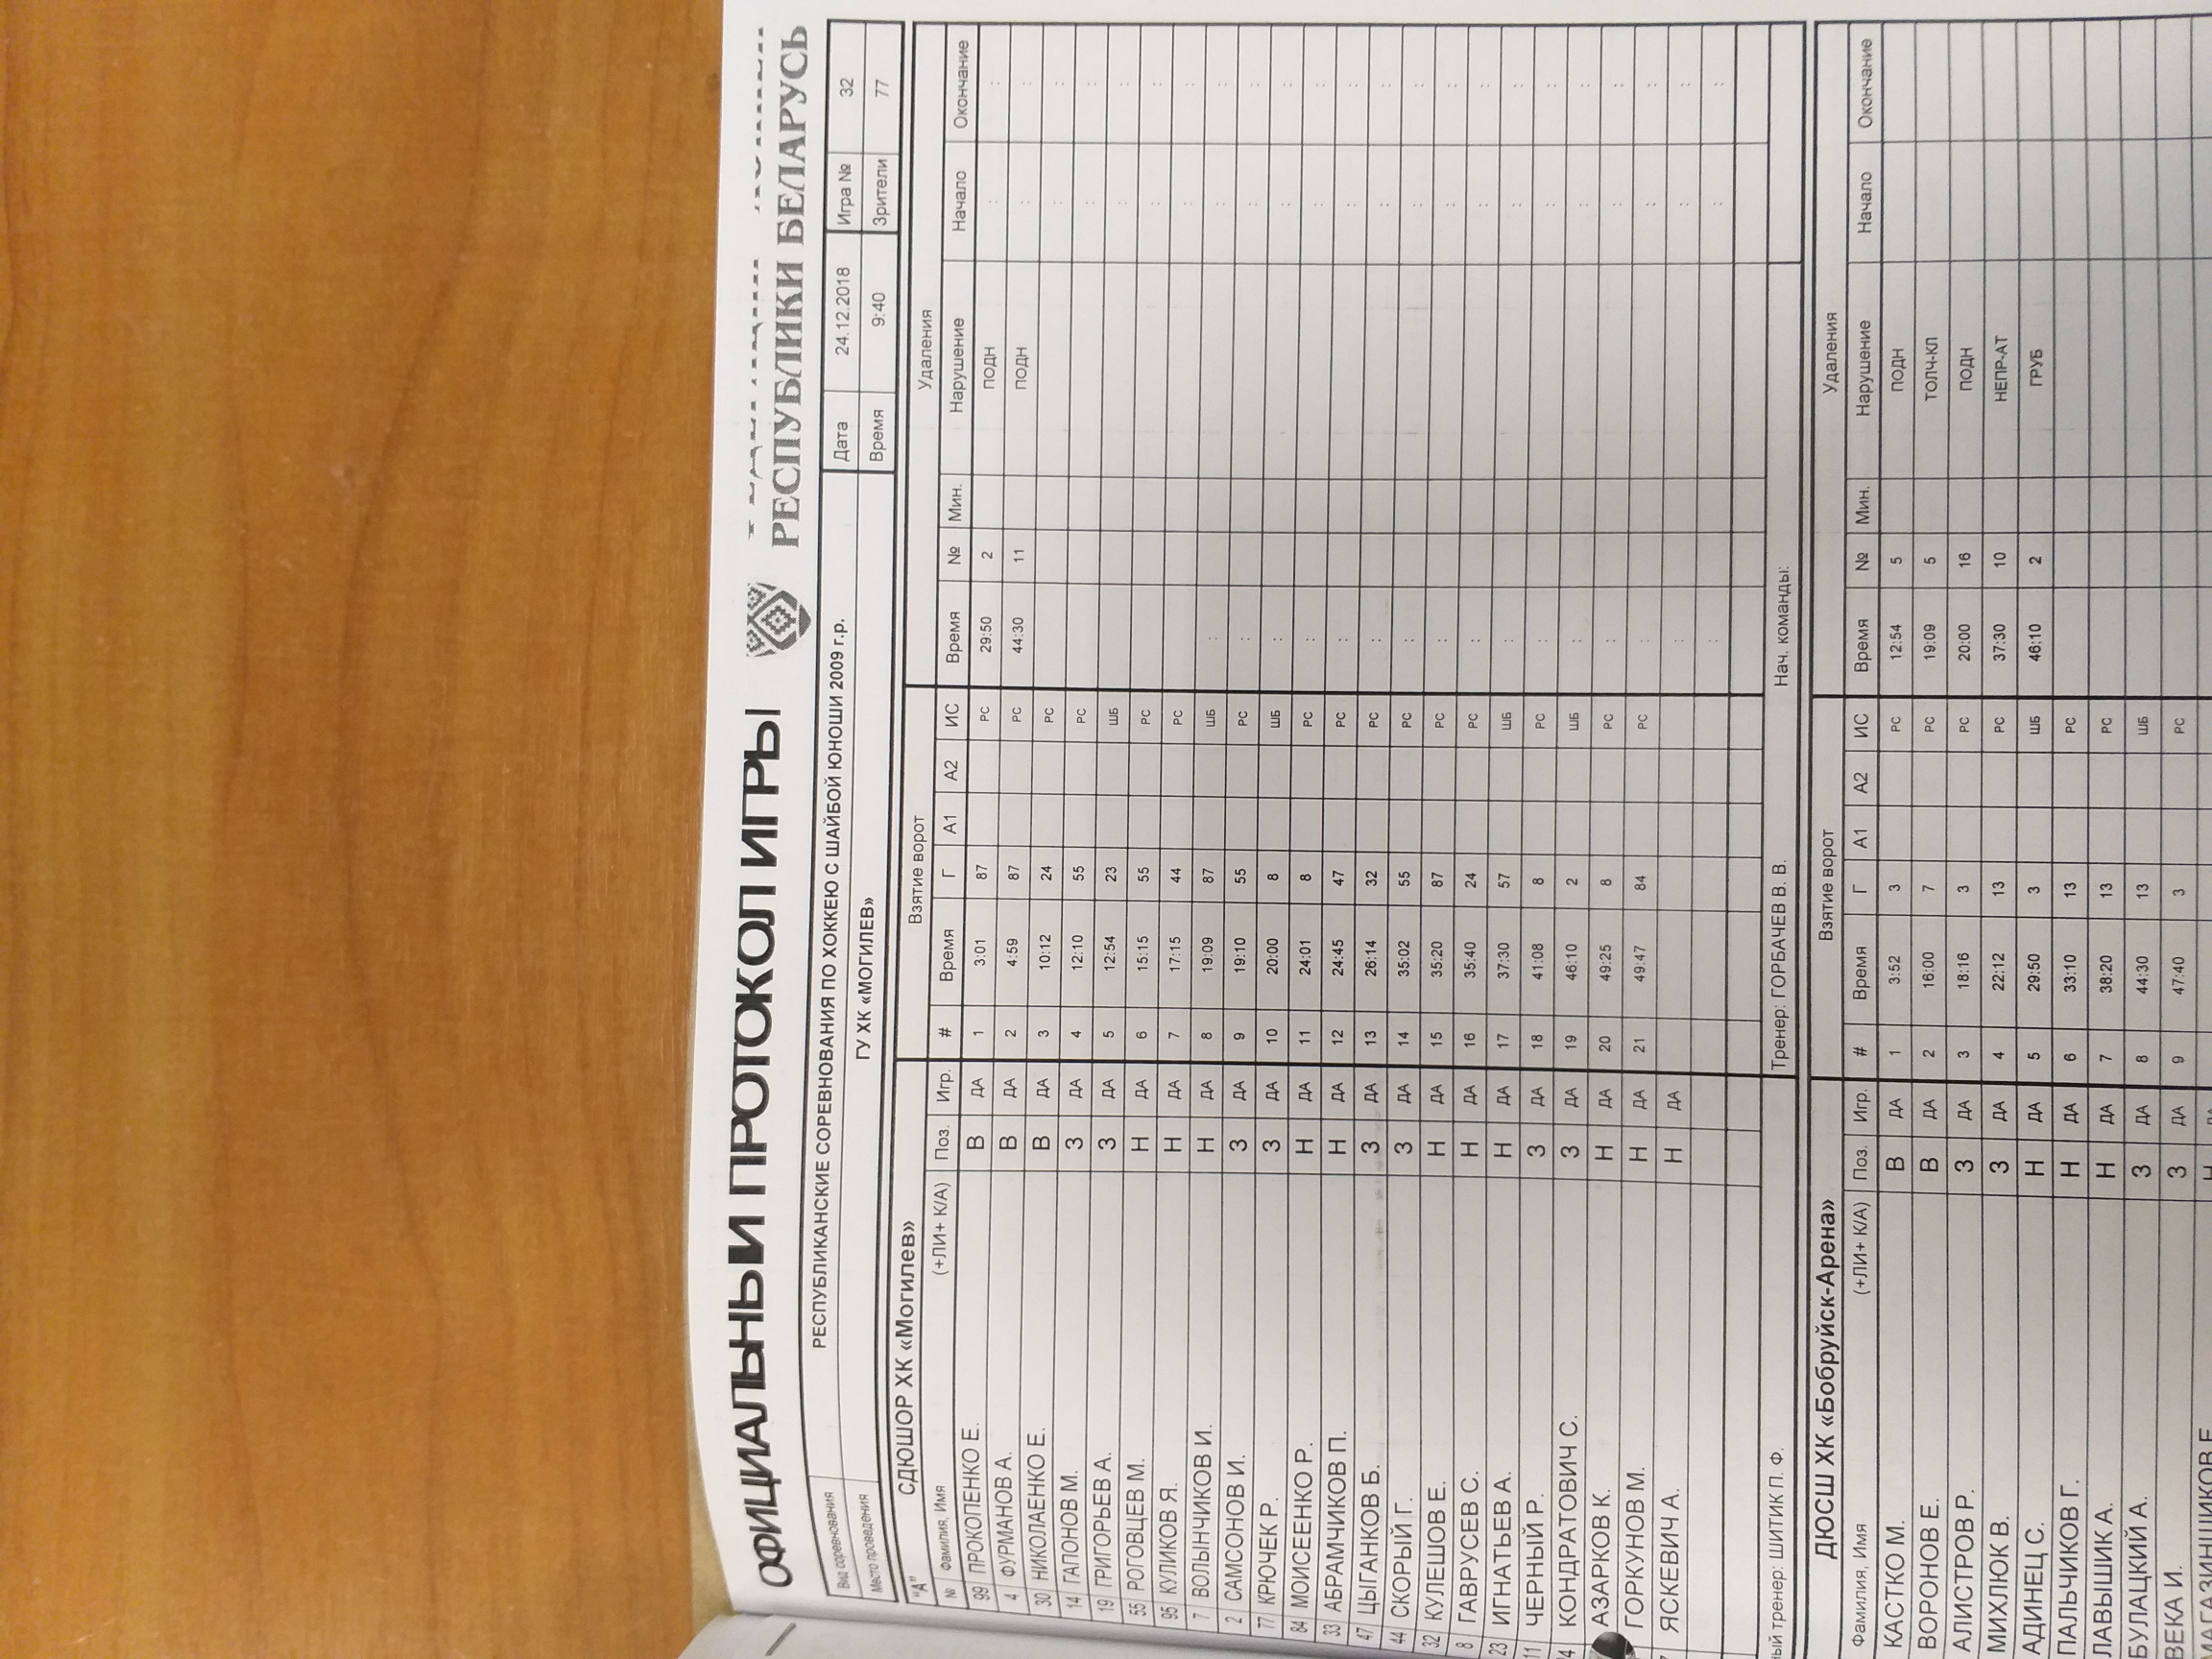 ОФИЦИАЛЬНЫЙ ПРОТОКОЛ ИГРЫ
РЕСПУБЛИКИ БЕЛАРУСЬ
Вид соревнования РЕСПУБЛИКАНСКИЕ СОРЕВНОВАНИЯ ПО ХОККЕЮ С ШАЙБОЙ ЮНОШИ 2009 г.р. Дата 24.12.2018 Игра № 32
Место проведения ГУ ХК «МОГИЛЕВ» Время 9:40 Зрители 77
"А" СДЮШОР ХК «Могилев» Взятие ворот Удаления
№ Фамилия, Имя (+ЛИ+ К/А) Поз. Игр. # Время Г А1 А2 ИС Время № Мин. Нарушение Начало Окончание
99 ПРОКОПЕНКО Е. В ДА 1 3:01 87 РС 29:50 2 ПОДН : :
4 ФУРМАНОВ А. В ДА 2 4:59 87 РС 44:30 11 ПОДН : :
30 НИКОЛАЕНКО Е. В ДА 3 10:12 24 РС : :
14 ГАПОНОВ М. З ДА 4 12:10 55 РС : :
19 ГРИГОРЬЕВ А. З ДА 5 12:54 23 ШБ : :
55 РОГОВЦЕВ М. Н ДА 6 15:15 55 РС : :
95 КУЛИКОВ Я. Н ДА 7 17:15 44 РС : :
7 ВОЛЫНЧИКОВ И. Н ДА 8 19:09 87 ШБ : : :
2 САМСОНОВ И. З ДА 9 19:10 55 РС : : :
77 КРЮЧЕК Р. З ДА 10 20:00 8 ШБ : : :
84 МОИСЕЕНКО Р. Н ДА 11 24:01 8 РС : : :
33 АБРАМЧИКОВ П. Н ДА 12 24:45 47 РС : : :
47 ЦЫГАНКОВ Б. З ДА 13 26:14 32 РС : : :
44 СКОРЫЙ Г. З ДА 14 35:02 55 РС : : :
32 КУЛЕШОВ Е. Н ДА 15 35:20 87 РС : : :
8 ГАВРУСЕВ С. Н ДА 16 35:40 24 РС : : :
23 ИГНАТЬЕВ А. Н ДА 17 37:30 57 ШБ : : :
11 ЧЕРНЫЙ Р. З ДА 18 41:08 8 РС : : :
КОНДРАТОВИЧ С. З ДА 19 46:10 2 ШБ : : :
АЗАРКОВ К. Н ДА 20 49:25 8 РС : : :
ГОРКУНОВ М. Н ДА 21 49:47 84 РС : : :
ЯСКЕВИЧ А. Н ДА : : :
: : :
тренер: ШИТИК П. Ф. Тренер: ГОРБАЧЕВ В. В. Нач. команды:
ДЮСШ ХК «Бобруйск-Арена» Взятие ворот Удаления
Фамилия, Имя (+ЛИ+ К/А) Поз. Игр. # Время Г А1 А2 ИС Время № Мин. Нарушение Начало Окончание
КАСТКО М. В ДА 1 3:52 3 РС 12:54 5 ПОДН
ВОРОНОВ Е. В ДА 2 16:00 7 РС 19:09 5 ТОЛЧ-КЛ
АЛИСТРОВ Р. З ДА 3 18:16 3 РС 20:00 16 ПОДН
МИХЛЮК В. З ДА 4 22:12 13 РС 37:30 10 НЕПР-АТ
АДИНЕЦ С. Н ДА 5 29:50 3 ШБ 46:10 2 ГРУБ
ПАЛЬЧИКОВ Г. Н ДА 6 33:10 13 РС
ЛАВЫШИК А. Н ДА 7 38:20 13 РС
БУЛАЦКИЙ А. З ДА 8 44:30 13 ШБ
ВЕКА И. З ДА 9 47:40 3 РС